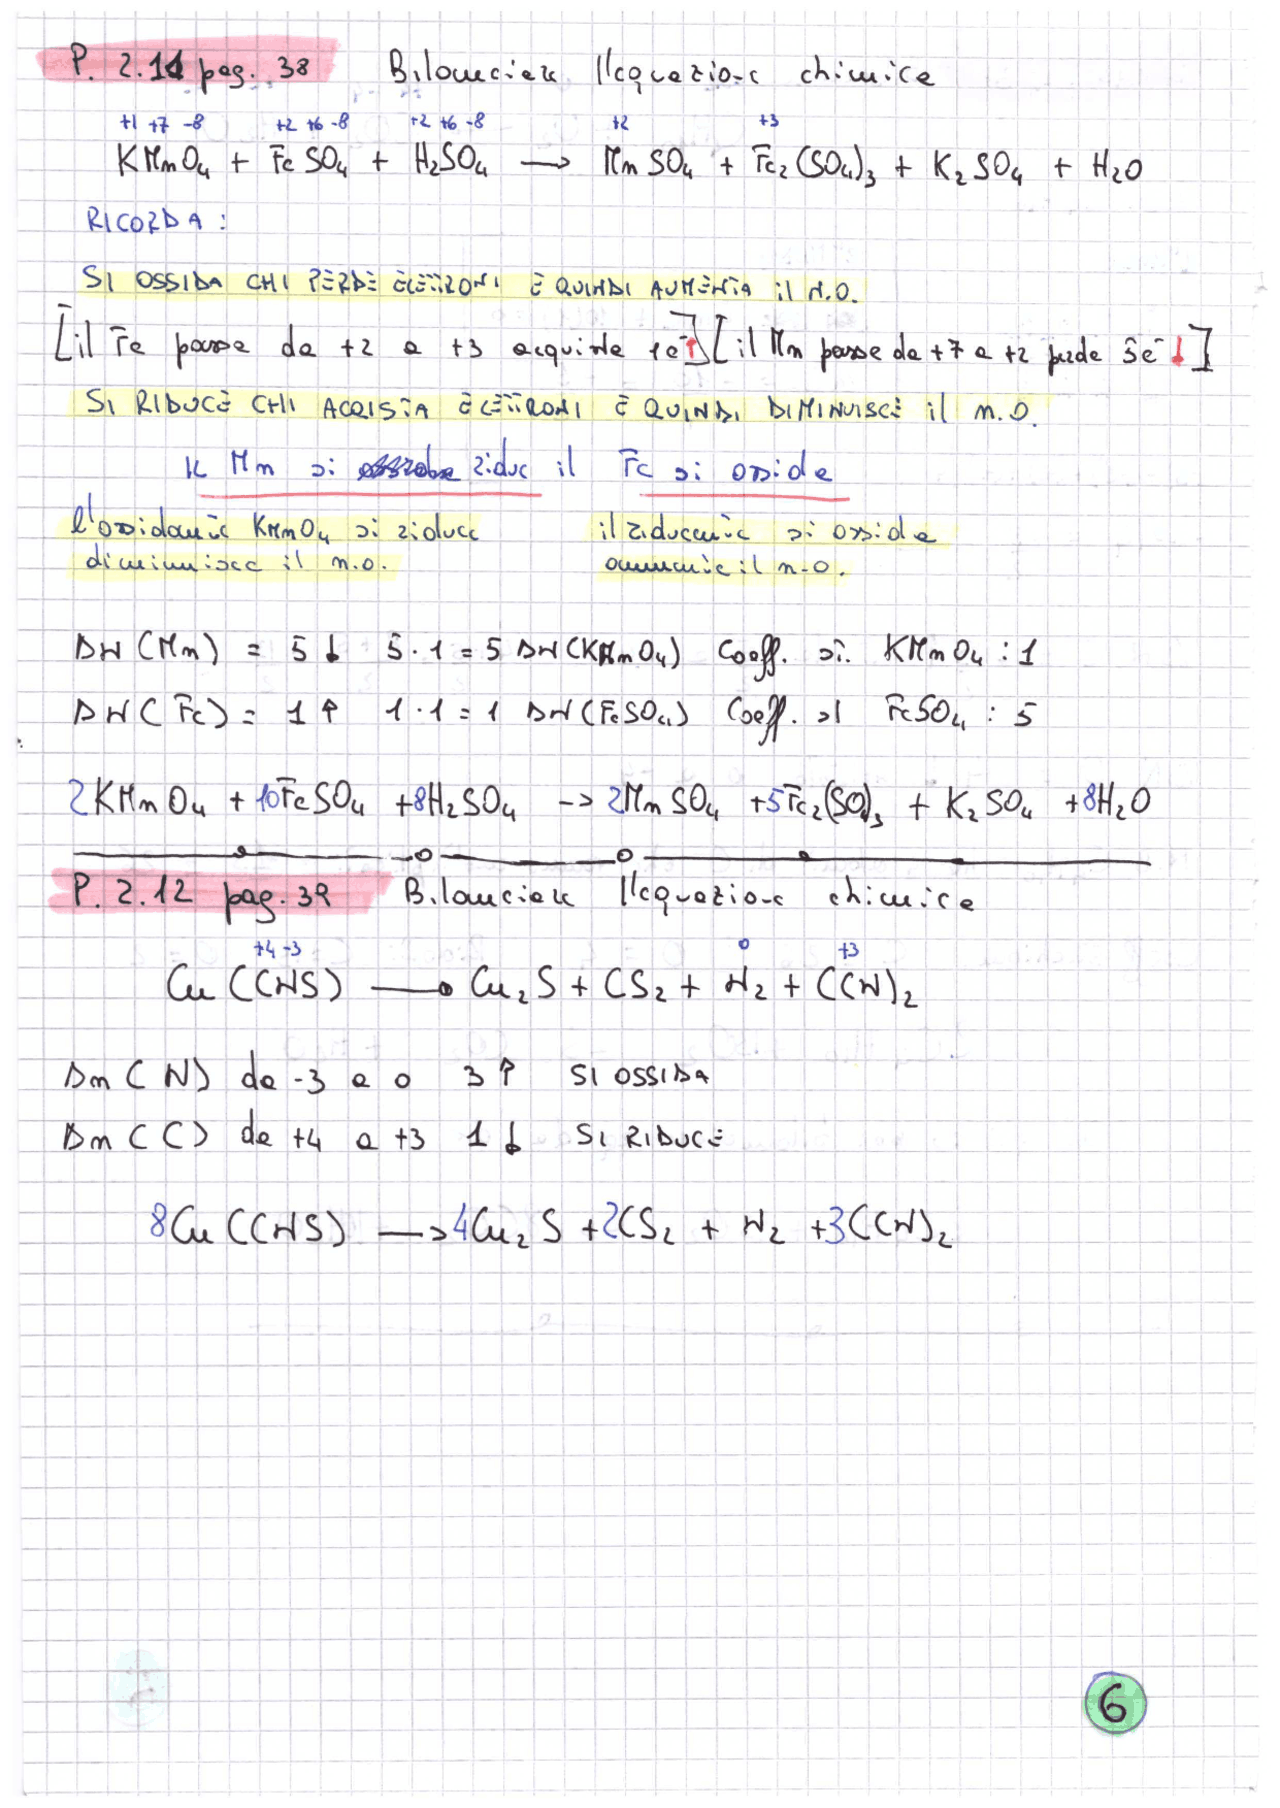 P. 2.11 pag. 38 Bilanciare l'equazione chimica
+1 +7 -8 +2 +6 -8 +2 +6 -8 +2 +3
KMnO4 + FeSO4 + H2SO4 → MnSO4 + Fe2(SO4)3 + K2SO4 + H2O
RICORDA:
SI OSSIDA CHI PERDE ELETTRONI E QUINDI AUMENTA il N.O.
[il Fe passa da +2 a +3 acquista 1e⁻↑] [il Mn passa da +7 a +2 perde 5e⁻↓]
SI RIDUCE CHI ACQISTA ELETTRONI E QUINDI DIMINUISCE il n.O.
Mn si riduc il Fe si ossida
l'ossidante KMnO4 si riduce il riducente si ossida
diminuisce il n.o. aumenta il n.o.
ΔN(Mn) = 5↓ 5·1=5 ΔN(KMnO4) Coeff. st. KMnO4 : 1
ΔN(Fe) = 1↑ 1·1=1 ΔN(FeSO4) Coeff. st FeSO4 : 5
2KMnO4 + 10FeSO4 + 8H2SO4 → 2MnSO4 + 5Fe2(SO4)3 + K2SO4 + 8H2O
P. 2.12 pag. 39 Bilanciare l'equazione chimica
+4 -3 0 +3
Cu(CNS) → Cu2S + CS2 + N2 + (CN)2
Δn(N) da -3 a 0 3↑ SI OSSIDA
Δn(C) da +4 a +3 1↓ SI RIDUCE
8Cu(CNS) → 4Cu2S + 2CS2 + N2 + 3(CN)2
6